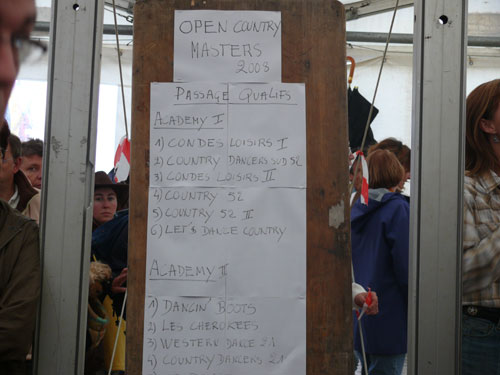 OPEN COUNTRY
MASTERS
2008
PASSAGE QUALIFS
ACADEMY I
1) CONDES LOISIRS I
2) COUNTRY DANCERS SUD 52
3) CONDES LOISIRS II
4) COUNTRY 52
5) COUNTRY 52 II
6) LET'S DANCE COUNTRY
ACADEMY II
1) DANCIN' BOOTS
2) LES CHEROKEES
3) WESTERN DANCE 21
4) COUNTRY DANCERS 21